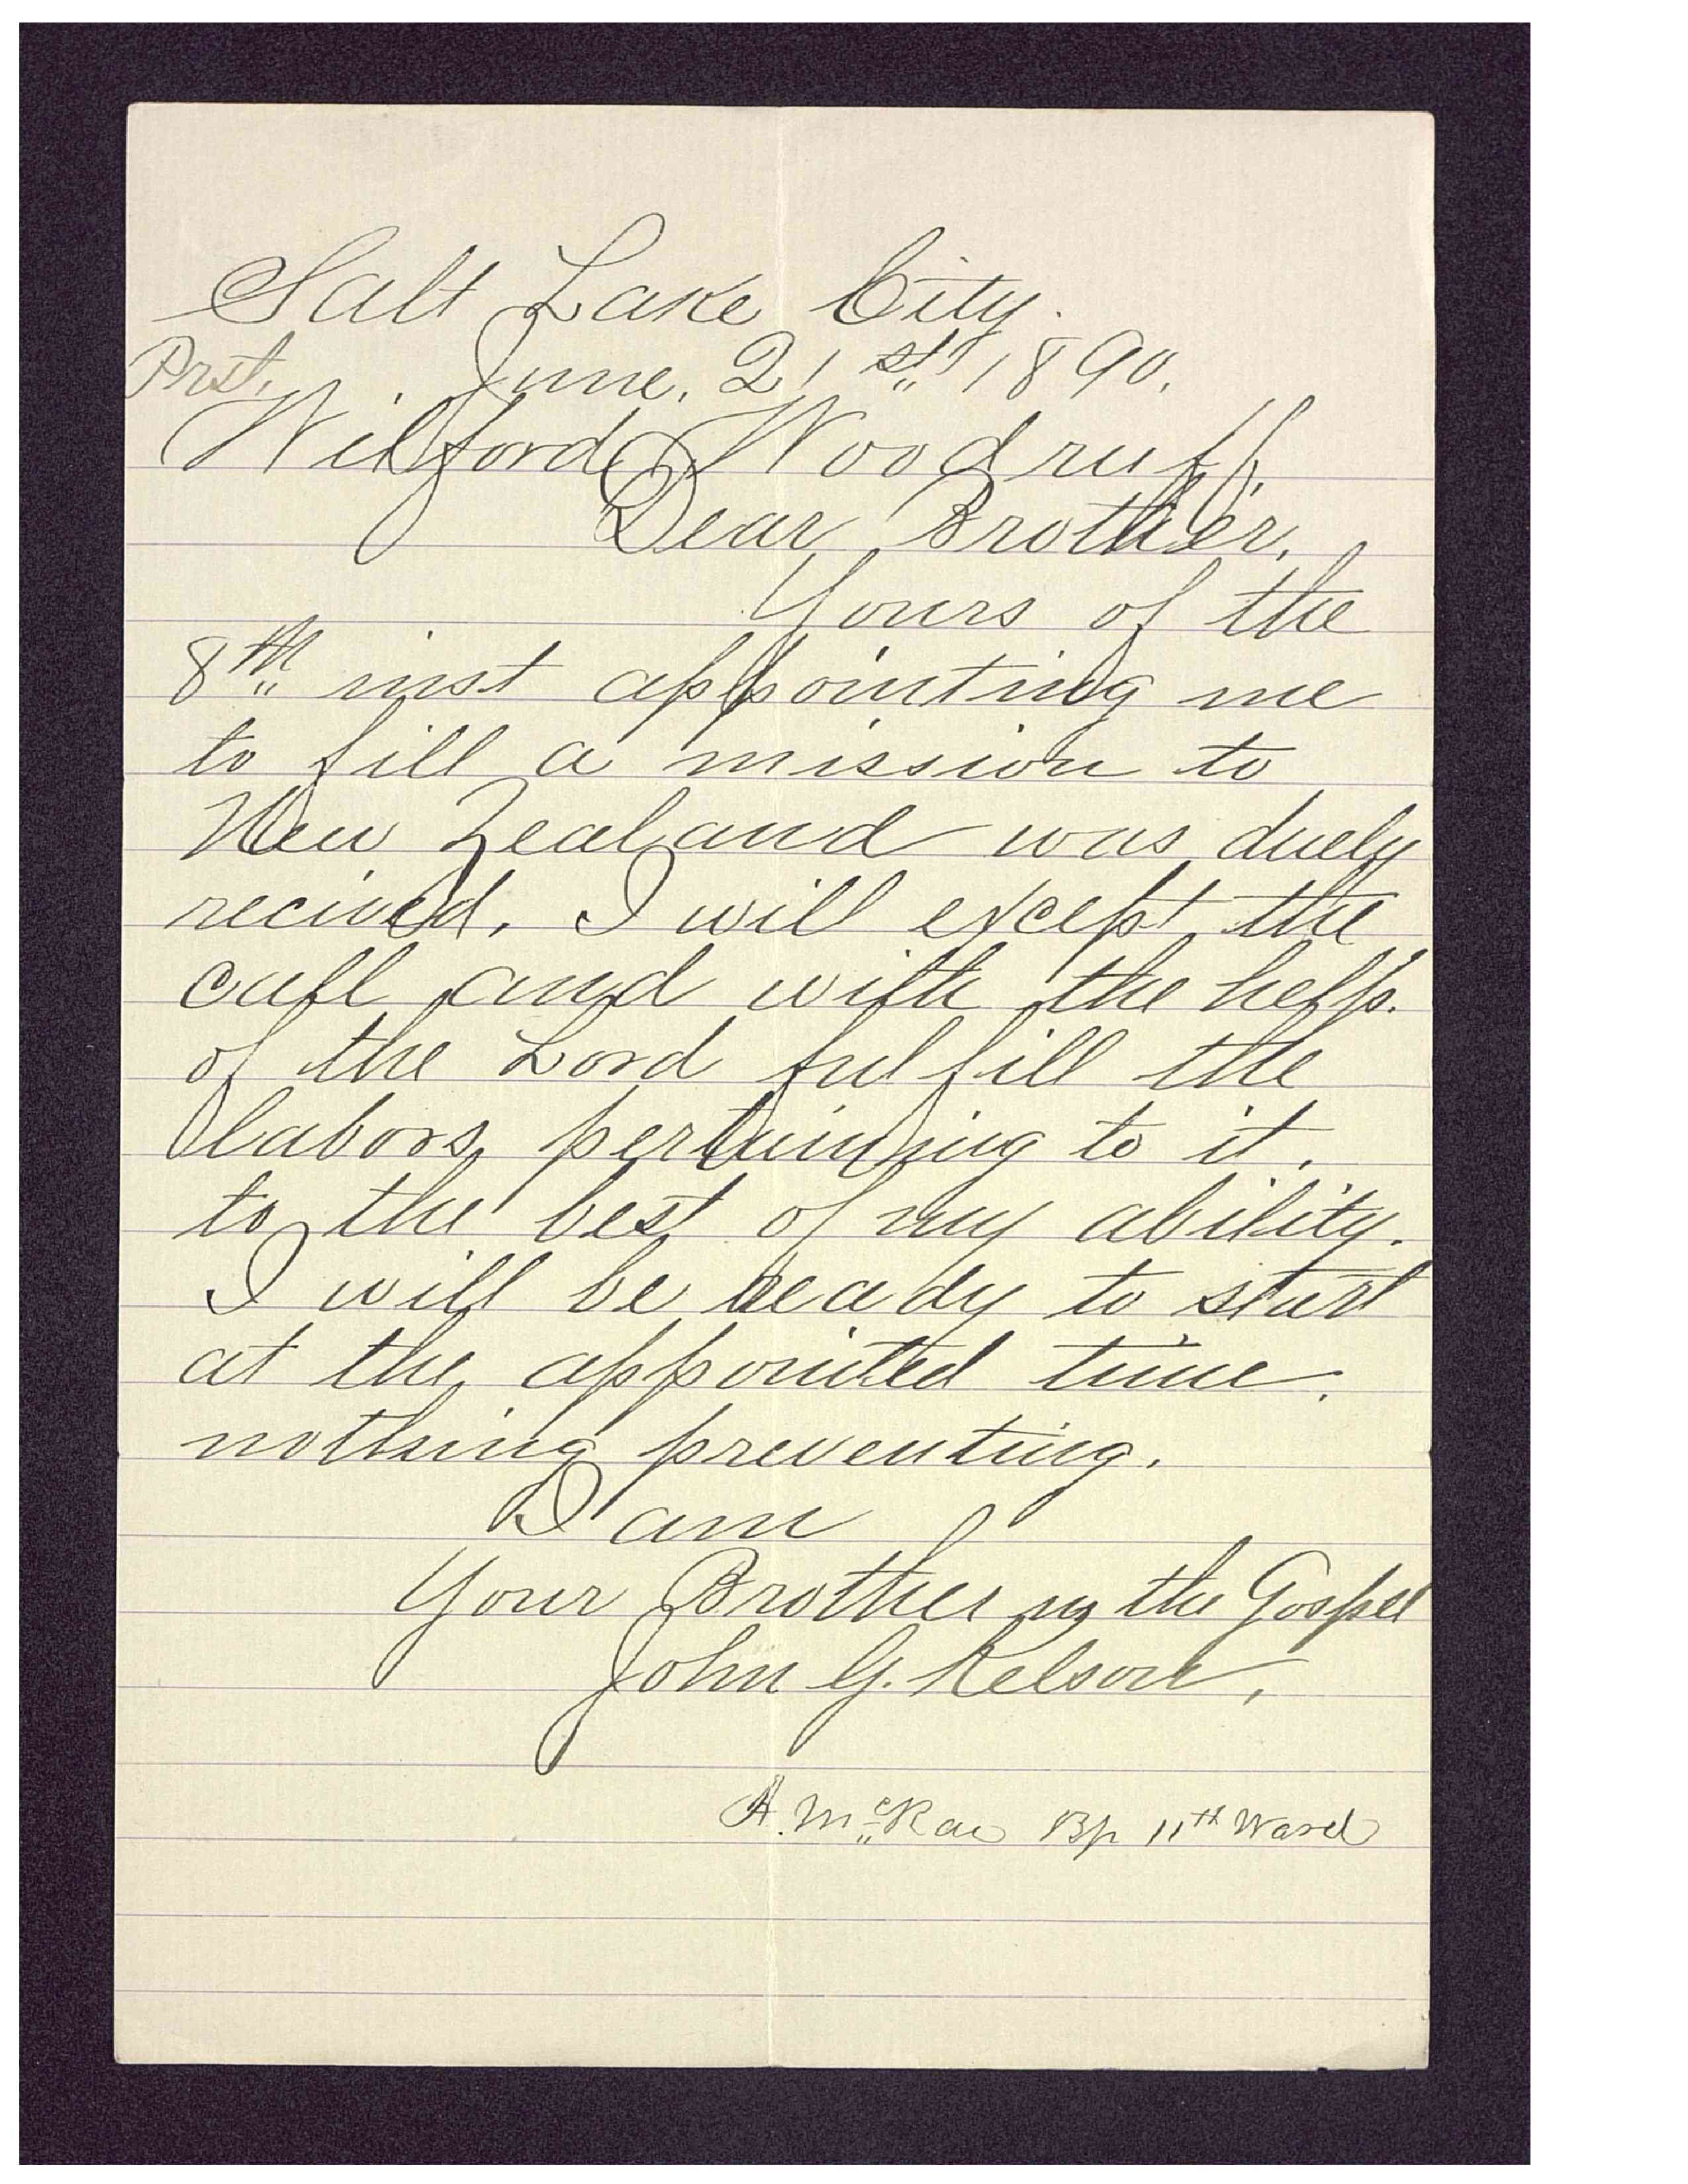 Salt Lake City.
Prst. June. 21st, 1890.
Wilford Woodruff,
Dear Brother.
Yours of the
8th inst appointing me
to fill a mission to
New Zealand was duely
recived. I will except the
call and with the help.
of the Lord fulfill the
labors pertaining to it.
to the best of my ability.
I will be ready to start
at the appointed time.
nothing preventing.
I am
Your Brother in the Gospel
John G. Kelson.
A. McRae Bp 11th Ward